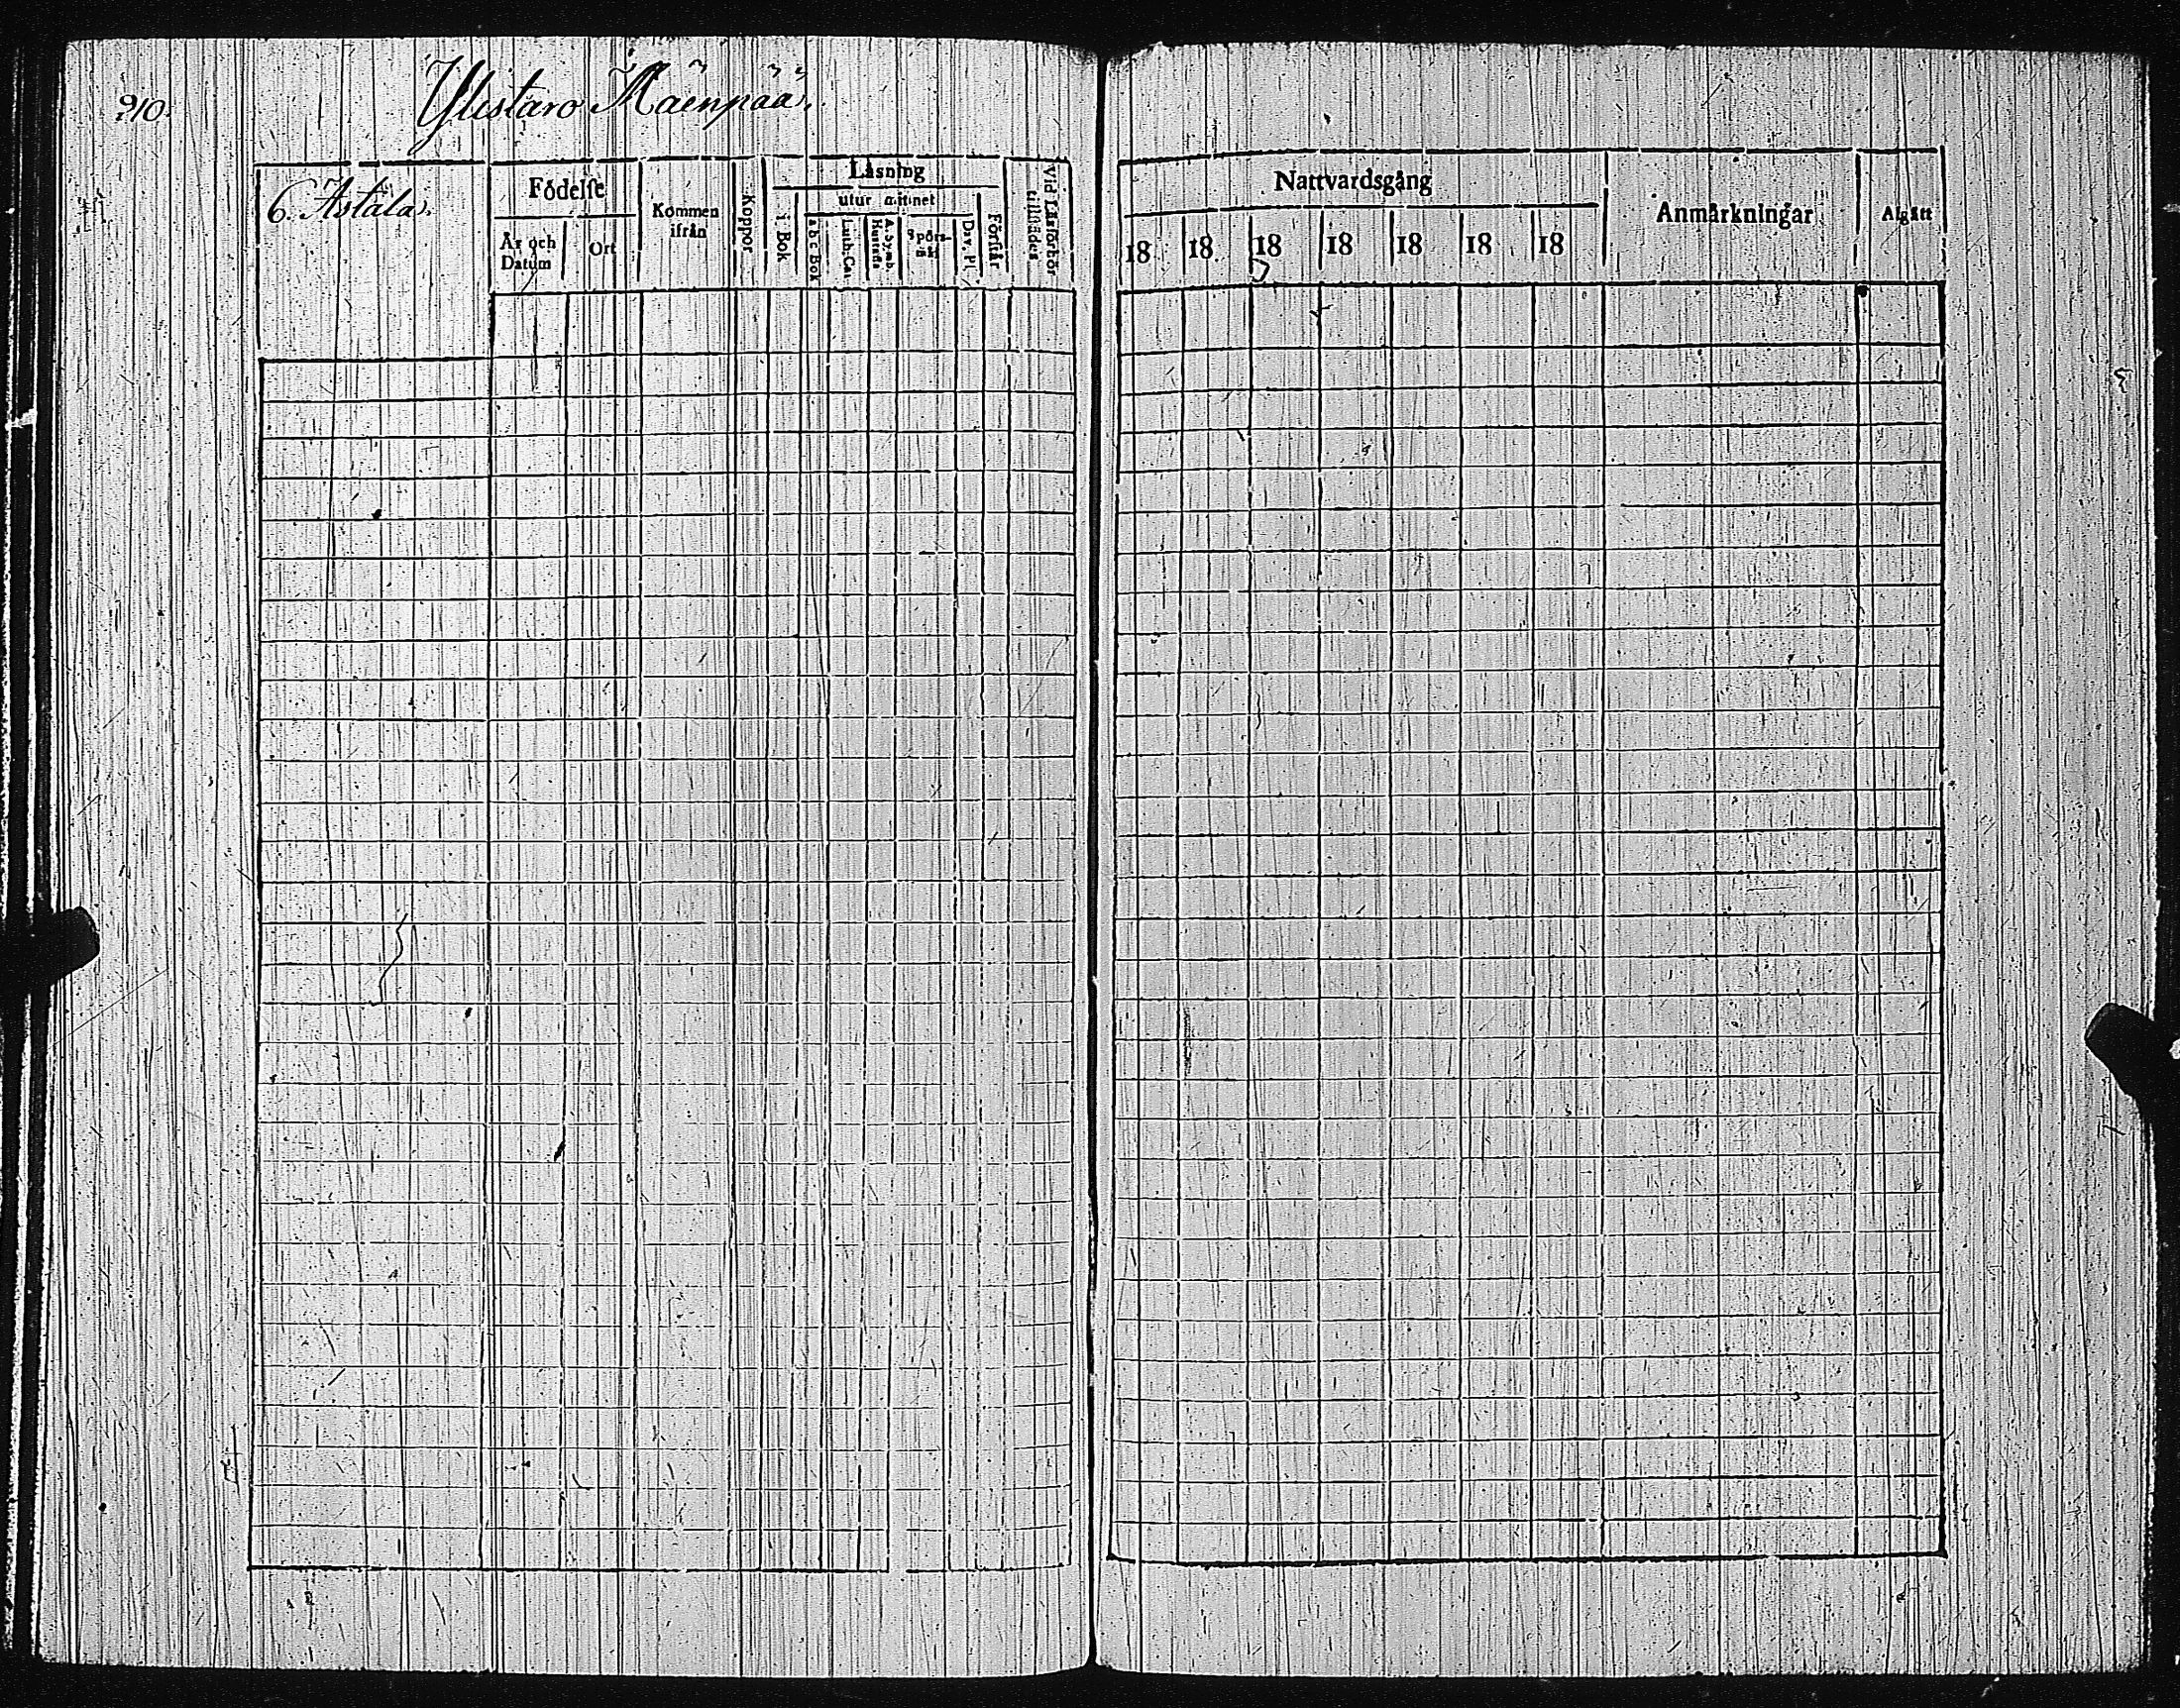 210.
Ylistaro Mäenpää.
6. Astala.
Födelse
År och Datum
Ort
Kommen ifrån
Koppor
Läsning
i Bok
utur minnet
a b c Bok
Luth. Cat.
A. Symb. Hustafla
Spörsmål
Dav. Ps.
Förstår
Vid Läsförhör tillstädes
Nattvardsgång
18 18 18 18 18 18 18
Anmärkningar
Afgått